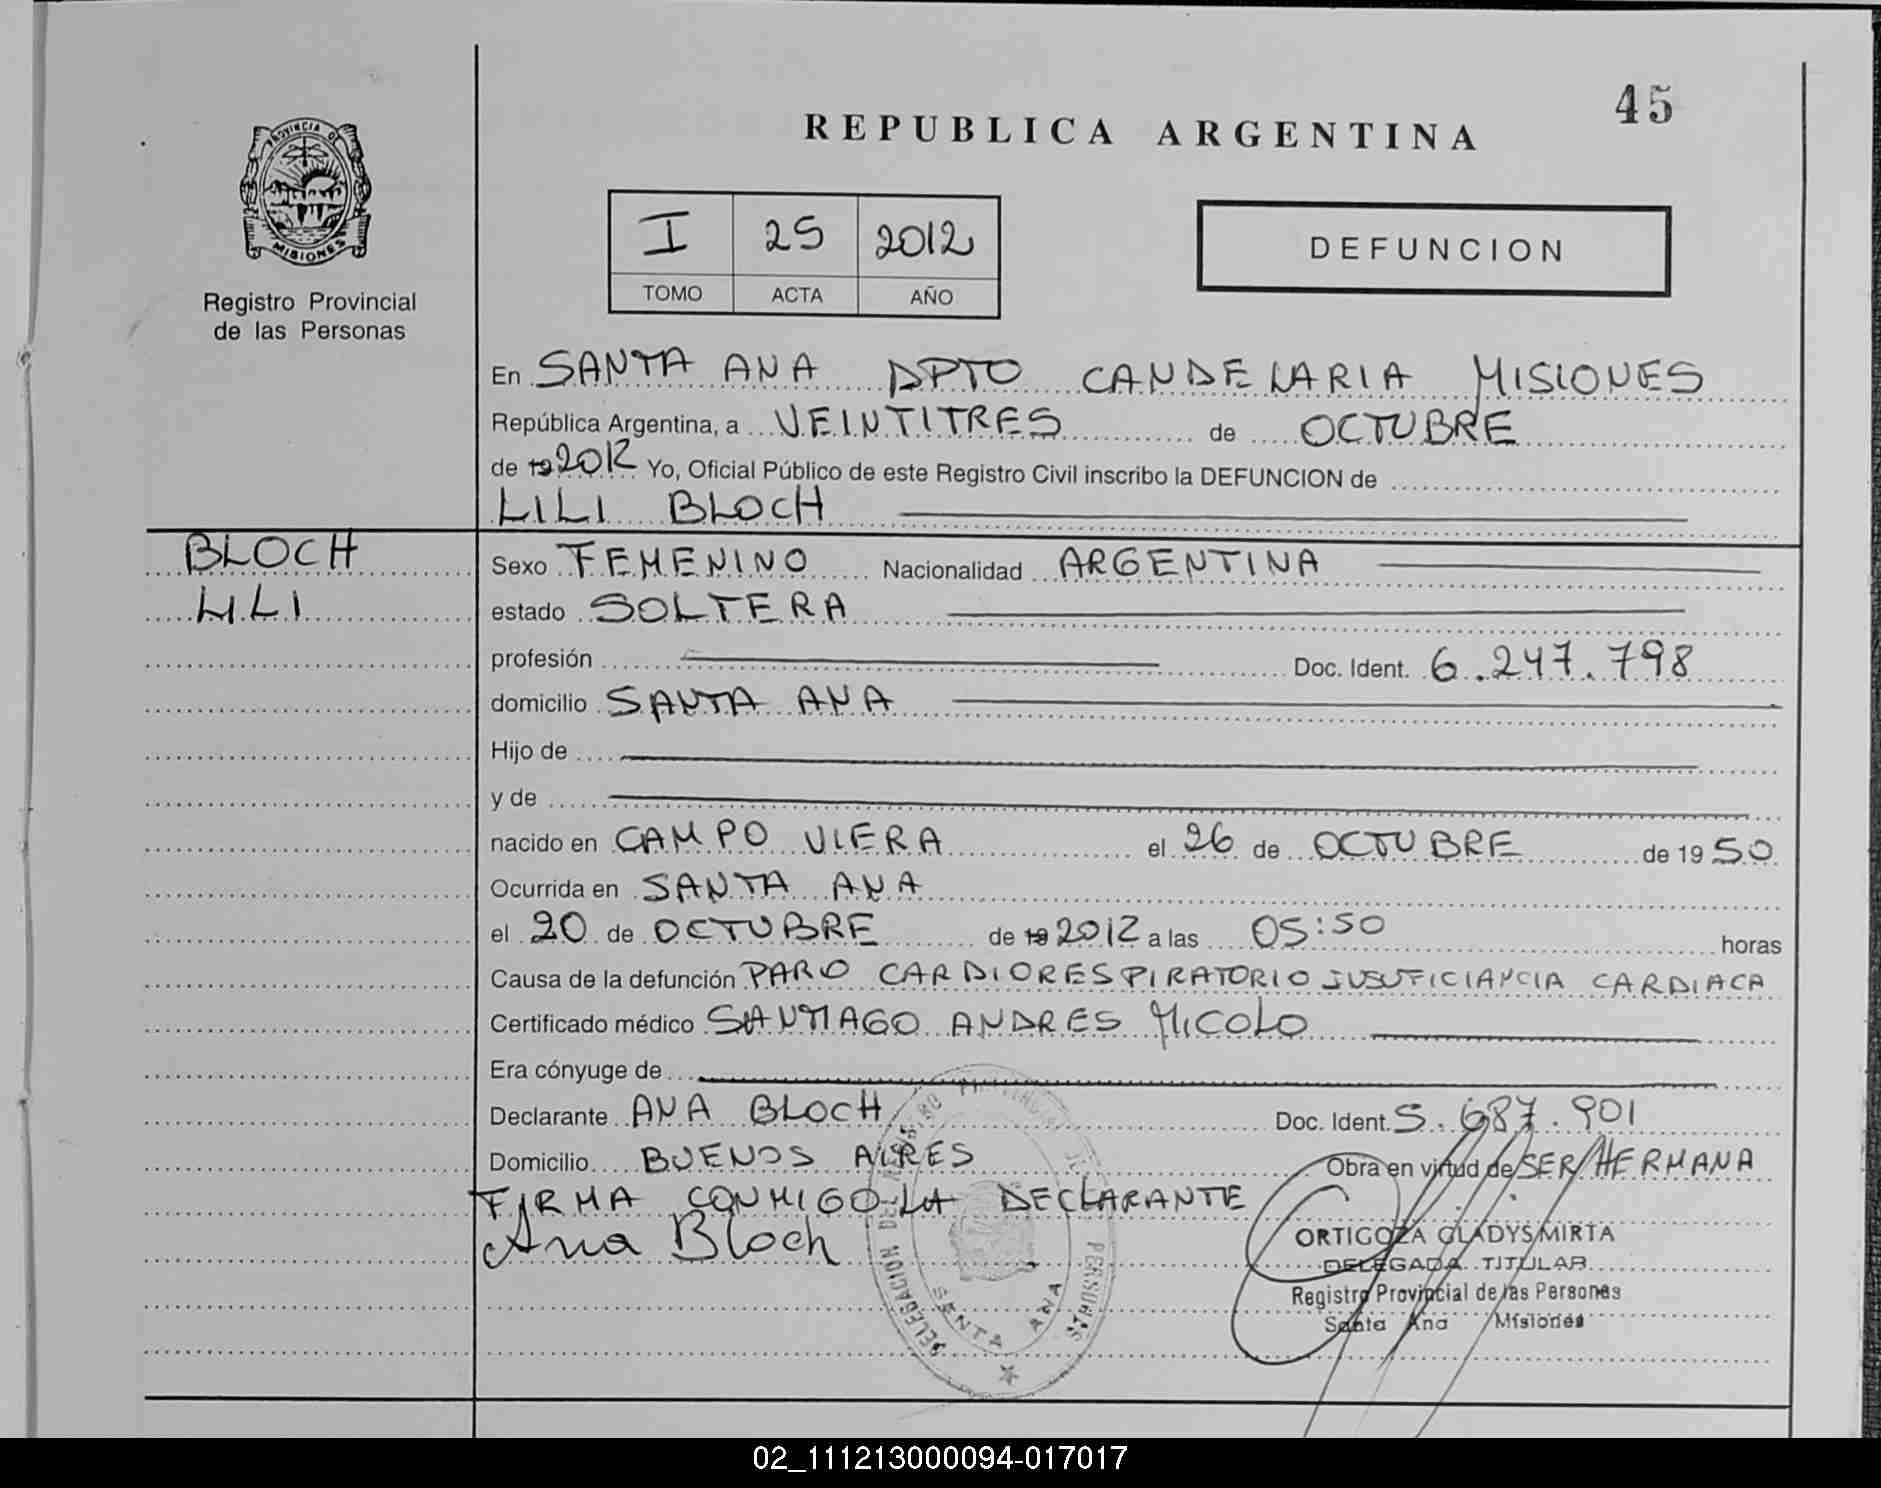 45
REPUBLICA ARGENTINA
PROVINCIA DE
MISIONES
Registro Provincial
de las Personas
I 25 2012
TOMO ACTA AÑO
DEFUNCION
En SANTA ANA DPTO CANDELARIA MISIONES
República Argentina, a VEINTITRES de OCTUBRE
de 19 2012 Yo, Oficial Público de este Registro Civil inscribo la DEFUNCION de
LILI BLOCH
BLOCH
LILI
Sexo FEMENINO Nacionalidad ARGENTINA
estado SOLTERA
profesión Doc. Ident. 6.247.798
domicilio SANTA ANA
Hijo de
y de
nacido en CAMPO VIERA el 26 de OCTUBRE de 19 50
Ocurrida en SANTA ANA
el 20 de OCTUBRE de 19 2012 a las 05:50 horas
Causa de la defunción PARO CARDIORESPIRATORIO INSUFICIANCIA CARDIACA
Certificado médico SANTIAGO ANDRES MICOLO
Era cónyuge de
Declarante ANA BLOCH Doc. Ident. 5.687.901
Domicilio BUENOS AIRES Obra en virtud de SER HERMANA
FIRMA CONMIGO LA DECLARANTE
Ana Bloch
DELEGACION DEL REGISTRO PROVINCIAL DE PERSONAS
SANTA ANA
ORTIGOZA GLADYS MIRTA
DELEGADA TITULAR
Registro Provincial de las Personas
Santa Ana Misiones
02_111213000094-017017